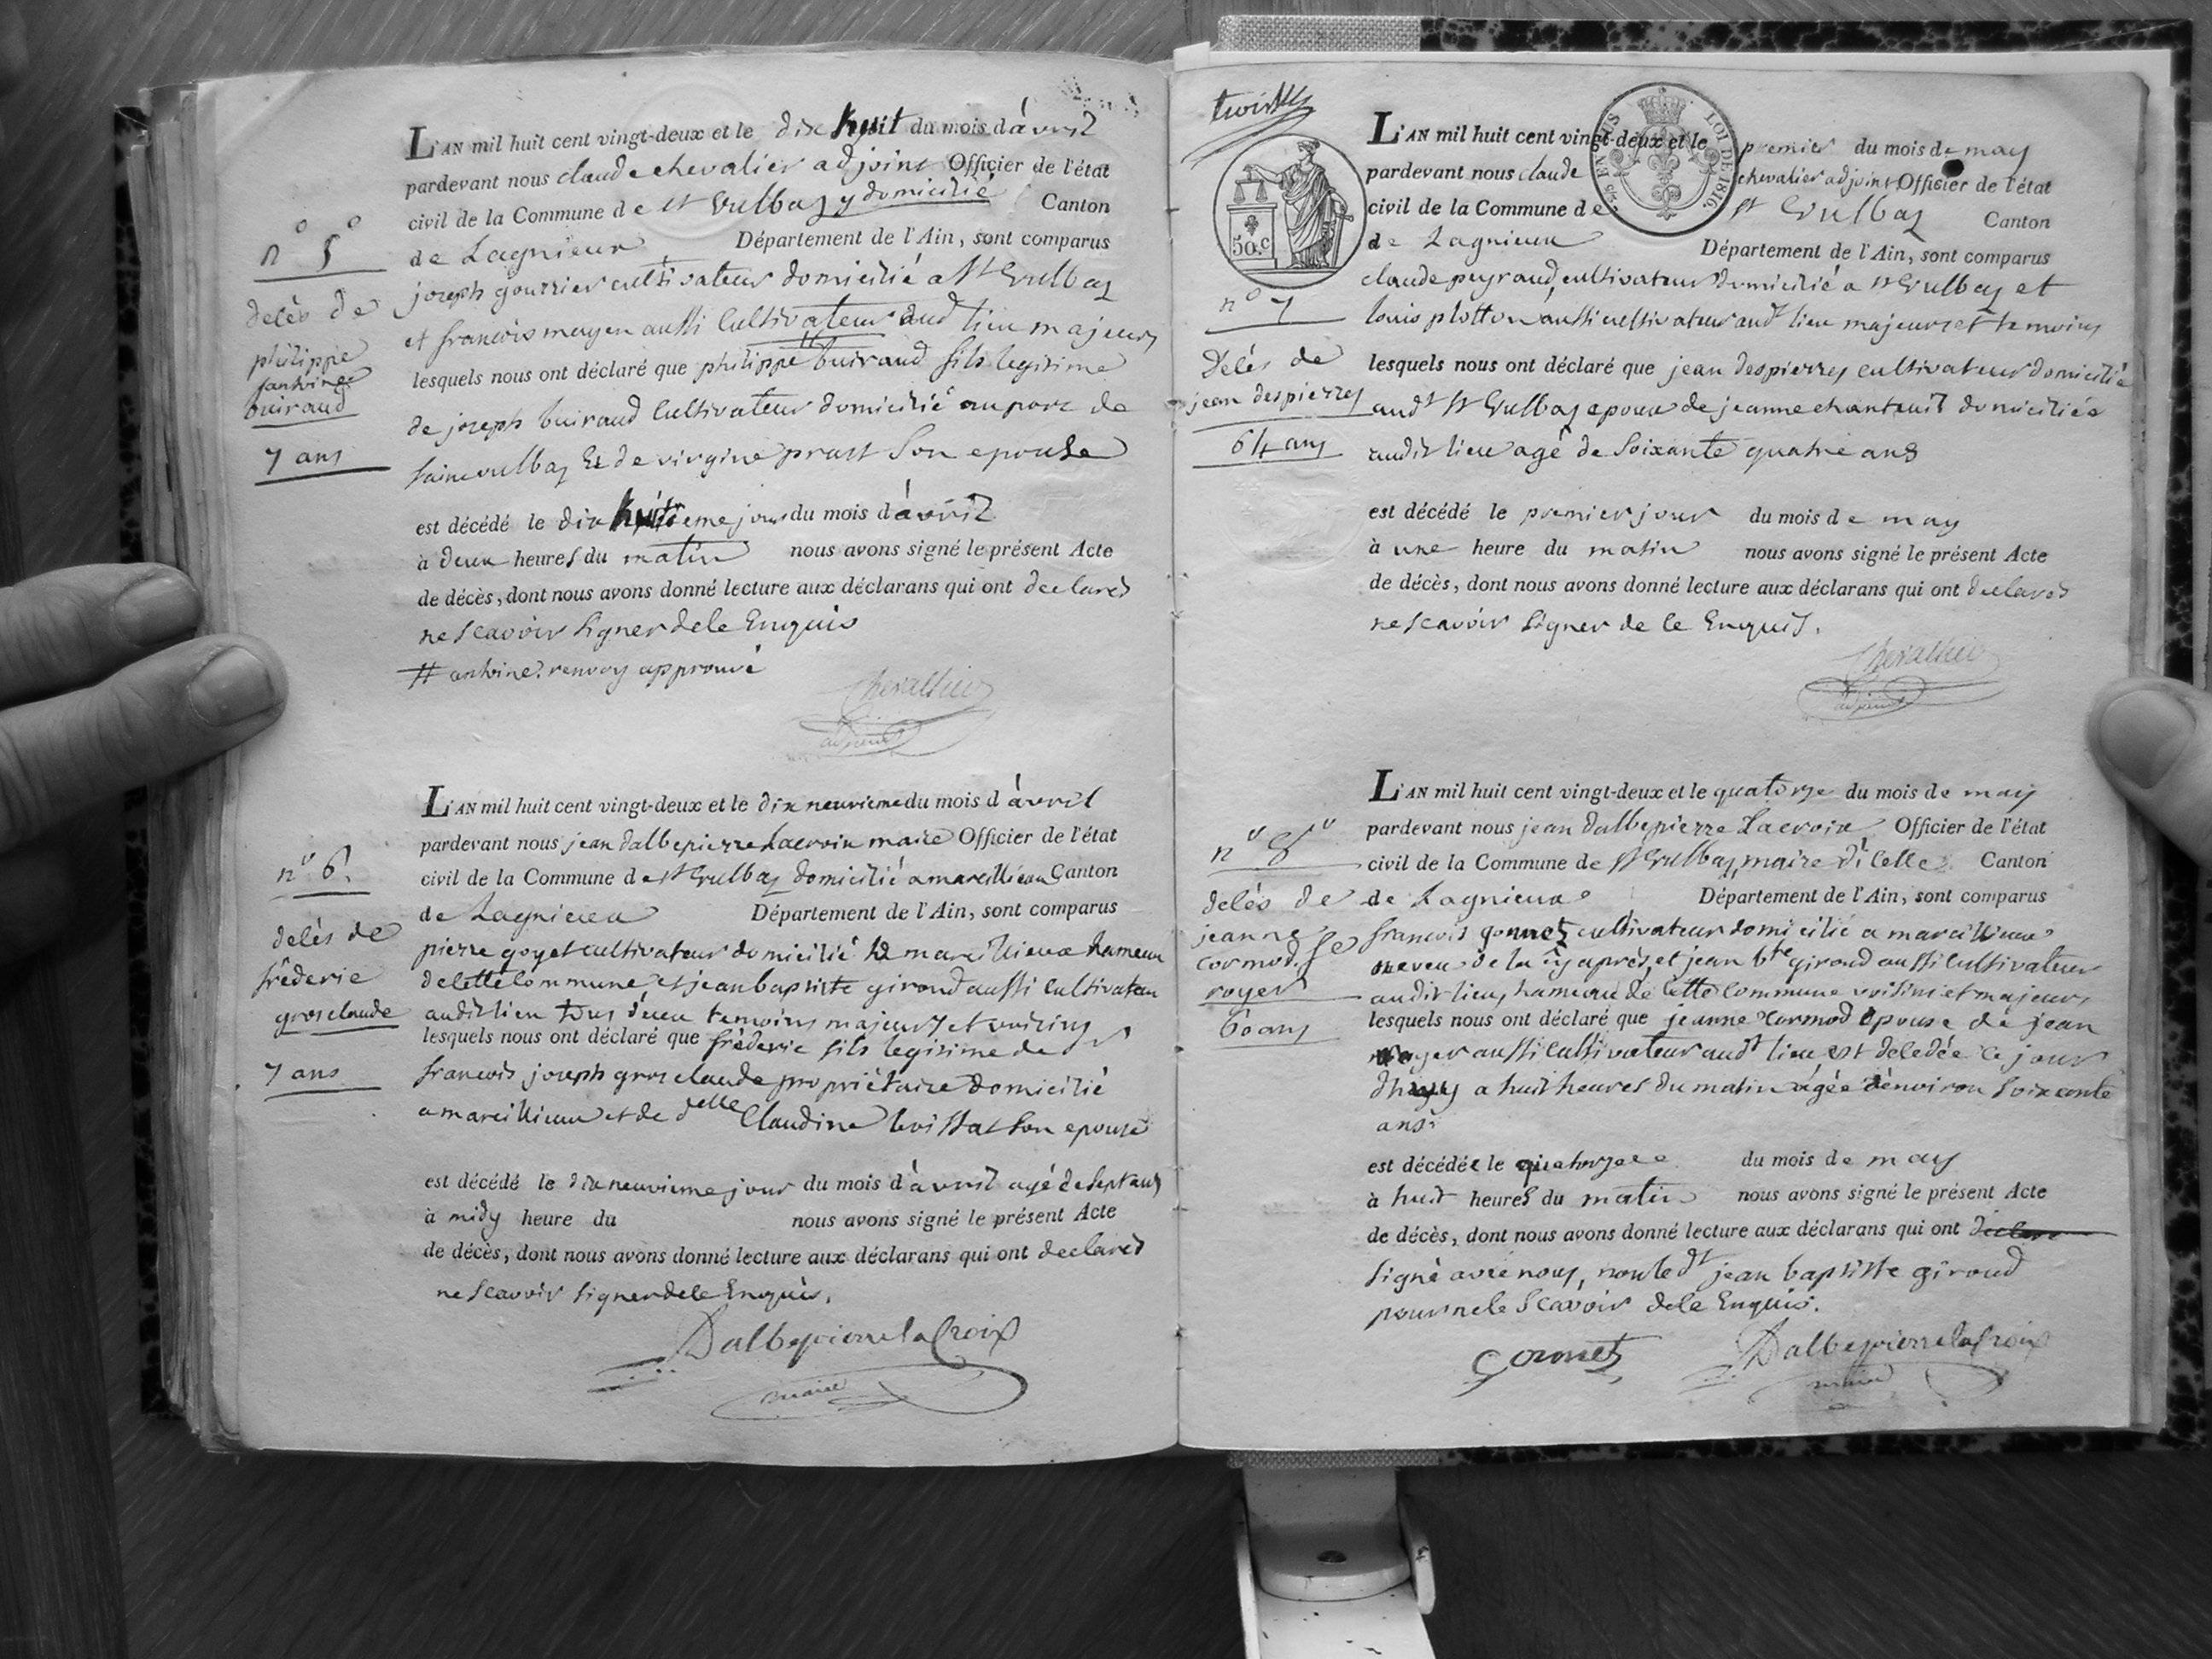 n° 5°
décès de
philippe
antoine
buiraud
7 ans
L'AN mil huit cent vingt-deux et le dix huit du mois d'avril
pardevant nous claude chevalier adjoint Officier de l'état
civil de la Commune de st Vulbas y domicilié Canton
de Lagnieux Département de l'Ain, sont comparus
joseph gourrier cultivateur domicilié a st Vulbas
et francois moyen aussi Cultivateur aud lieu majeurs
lesquels nous ont déclaré que philippe # buiraud fils legitime
de joseph buiraud Cultivateur domicilié au port de
saint vulbas Et de virgine prast Son epouse
est décédé le dix huitieme jour du mois d'avril
à deux heures du matin nous avons signé le présent Acte
de décès, dont nous avons donné lecture aux déclarans qui ont declares
ne scavoir signer de ce Enquis
# antoine renvoy approuvé
Chevallier
adjoint
n° 6.
décès de
fréderic
grosclaude
7 ans
L'AN mil huit cent vingt-deux et le dix neuvieme du mois d'avril
pardevant nous jean dalbepierre Lacroix maire Officier de l'état
civil de la Commune de st Vulbas domicilié a marcillieux Canton
de Lagnieux Département de l'Ain, sont comparus
pierre goyet cultivateur domicilié a marcillieux hameau
de cette Commune et jean baptiste giroud aussi Cultivateur
audit lieu tous deux temoins majeurs et voisins
lesquels nous ont déclaré que fréderic fils legitime de s
francois joseph grosclaude propriétaire domicilié
a marcillieux et de delle Claudine boissat son epouse
est décédé le dix neuvieme jour du mois d'avril agé de sept ans
à midy heure du nous avons signé le présent Acte
de décès, dont nous avons donné lecture aux déclarans qui ont declarés
ne scavoir signer de ce Enquis.
Dalbepierre la Croix
maire
50.c
EN SUS
LOI DE 1816.
n° 7
Décés de
jean despierres
64 ans
L'AN mil huit cent vingt-deux et le premier du mois de may
pardevant nous claude chevalier adjoint Officier de l'état
civil de la Commune de st Vulbas Canton
de Lagnieux Département de l'Ain, sont comparus
claude peyraud, cultivateur domicilié a st Vulbas et
louis plotton aussi cultivateur audt lieu majeurs et temoins
lesquels nous ont déclaré que jean despierres cultivateur domicilié
audt st Vulbas epoux de jeanne chanteuil domiciliée
audit lieu agé de Soixante quatre ans
est décédé le premier jour du mois de may
à une heure du matin nous avons signé le présent Acte
de décès, dont nous avons donné lecture aux déclarans qui ont declares
ne scavoir signer de ce Enquis.
Chevallier
adjoint
n° 8°
décés de
jeanne
cormod fe
royer
60 ans
L'AN mil huit cent vingt-deux et le quatorze du mois de may
pardevant nous jean dalbepierre Lacroix Officier de l'état
civil de la Commune de st Vulbas, maire d'icelle Canton
de Lagnieux Département de l'Ain, sont comparus
francois gonnet cultivateur domicilié a marcillieux
neveu de la cy aprés, et jean bte giroud aussi Cultivateur
audit lieu, hameau de Cette Commune voisins et majeurs
lesquels nous ont déclaré que jeanne cormod epouse de jean
royer aussi Cultivateur audt lieu est décédée ce jour
d'huy a huit heures du matin agée d'environ Soixante
ans.
est décédée le quatorze du mois de may
à huit heures du matin nous avons signé le présent Acte
de décès, dont nous avons donné lecture aux déclarans qui ont declare
signé avec nous, non ledt jean baptiste giroud
pour ne le Scavoir de ce Enquis.
Gonnet
Dalbepierre la Croix
maire